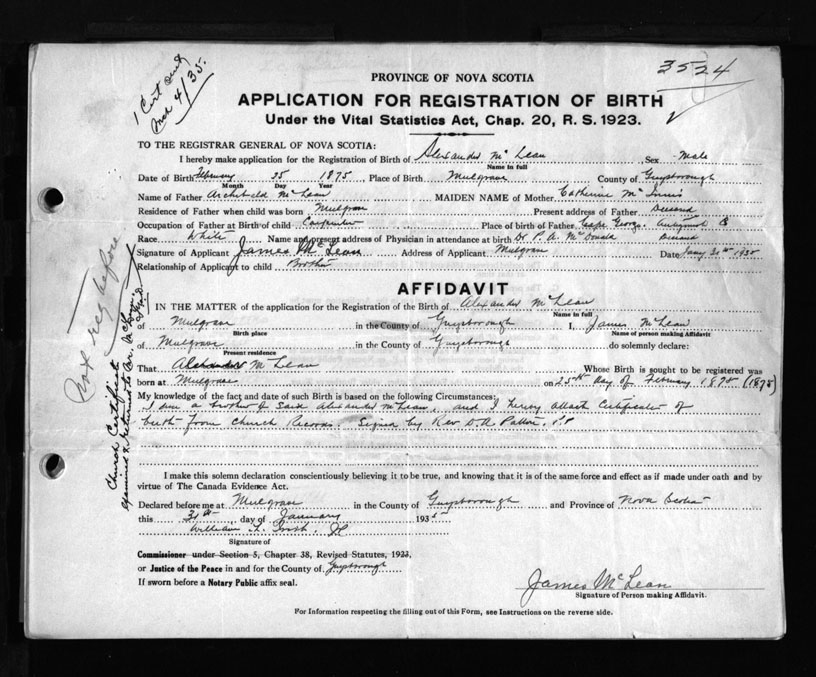 1 Cert sent
Mch 4/35.
3524
PROVINCE OF NOVA SCOTIA
APPLICATION FOR REGISTRATION OF BIRTH
Under the Vital Statistics Act, Chap. 20, R. S. 1923.
TO THE REGISTRAR GENERAL OF NOVA SCOTIA:
I hereby make application for the Registration of Birth of Alexander McLean, Sex Male
Name in full
Date of Birth February 25 1875 Place of Birth Mulgrave County of Guysborough
Month Day Year
Name of Father Archibald McLean MAIDEN NAME of Mother Catherine McInnis
Residence of Father when child was born Mulgrave Present address of Father Deceased
Occupation of Father at Birth of child Carpenter Place of birth of Father Cape George, Antigonish
Race White Name and present address of Physician in attendance at birth Dr P. A. McDonald Deceased
Signature of Applicant James McLean Address of Applicant Mulgrave Date Jany 30th 1935
Relationship of Applicant to child Brother
AFFIDAVIT
IN THE MATTER of the application for the Registration of the Birth of Alexander McLean
Name in full
of Mulgrave in the County of Guysborough I, James McLean
Birth place Name of person making Affidavit
of Mulgrave in the County of Guysborough do solemnly declare:
Present residence
That Alexander McLean Whose Birth is sought to be registered was
born at Mulgrave on 25th day of February 1875 (1875)
My knowledge of the fact and date of such Birth is based on the following Circumstances:
I am a brother of said Alexander McLean, and I hereby attach Certificate of
birth from Church Records. Signed by Rev. D. P.P
I make this solemn declaration conscientiously believing it to be true, and knowing that it is of the same force and effect as if made under oath and by
virtue of The Canada Evidence Act.
Declared before me at Mulgrave in the County of Guysborough and Province of Nova Scotia
this day of January 1935
William
Signature of
Commissioner under Section 5, Chapter 38, Revised Statutes, 1923,
or Justice of the Peace in and for the County of Guysborough
If sworn before a Notary Public affix seal.
James McLean
Signature of Person making Affidavit.
For Information respecting the filling out of this Form, see Instructions on the reverse side.
Not reg before
Church Certificate
returned to